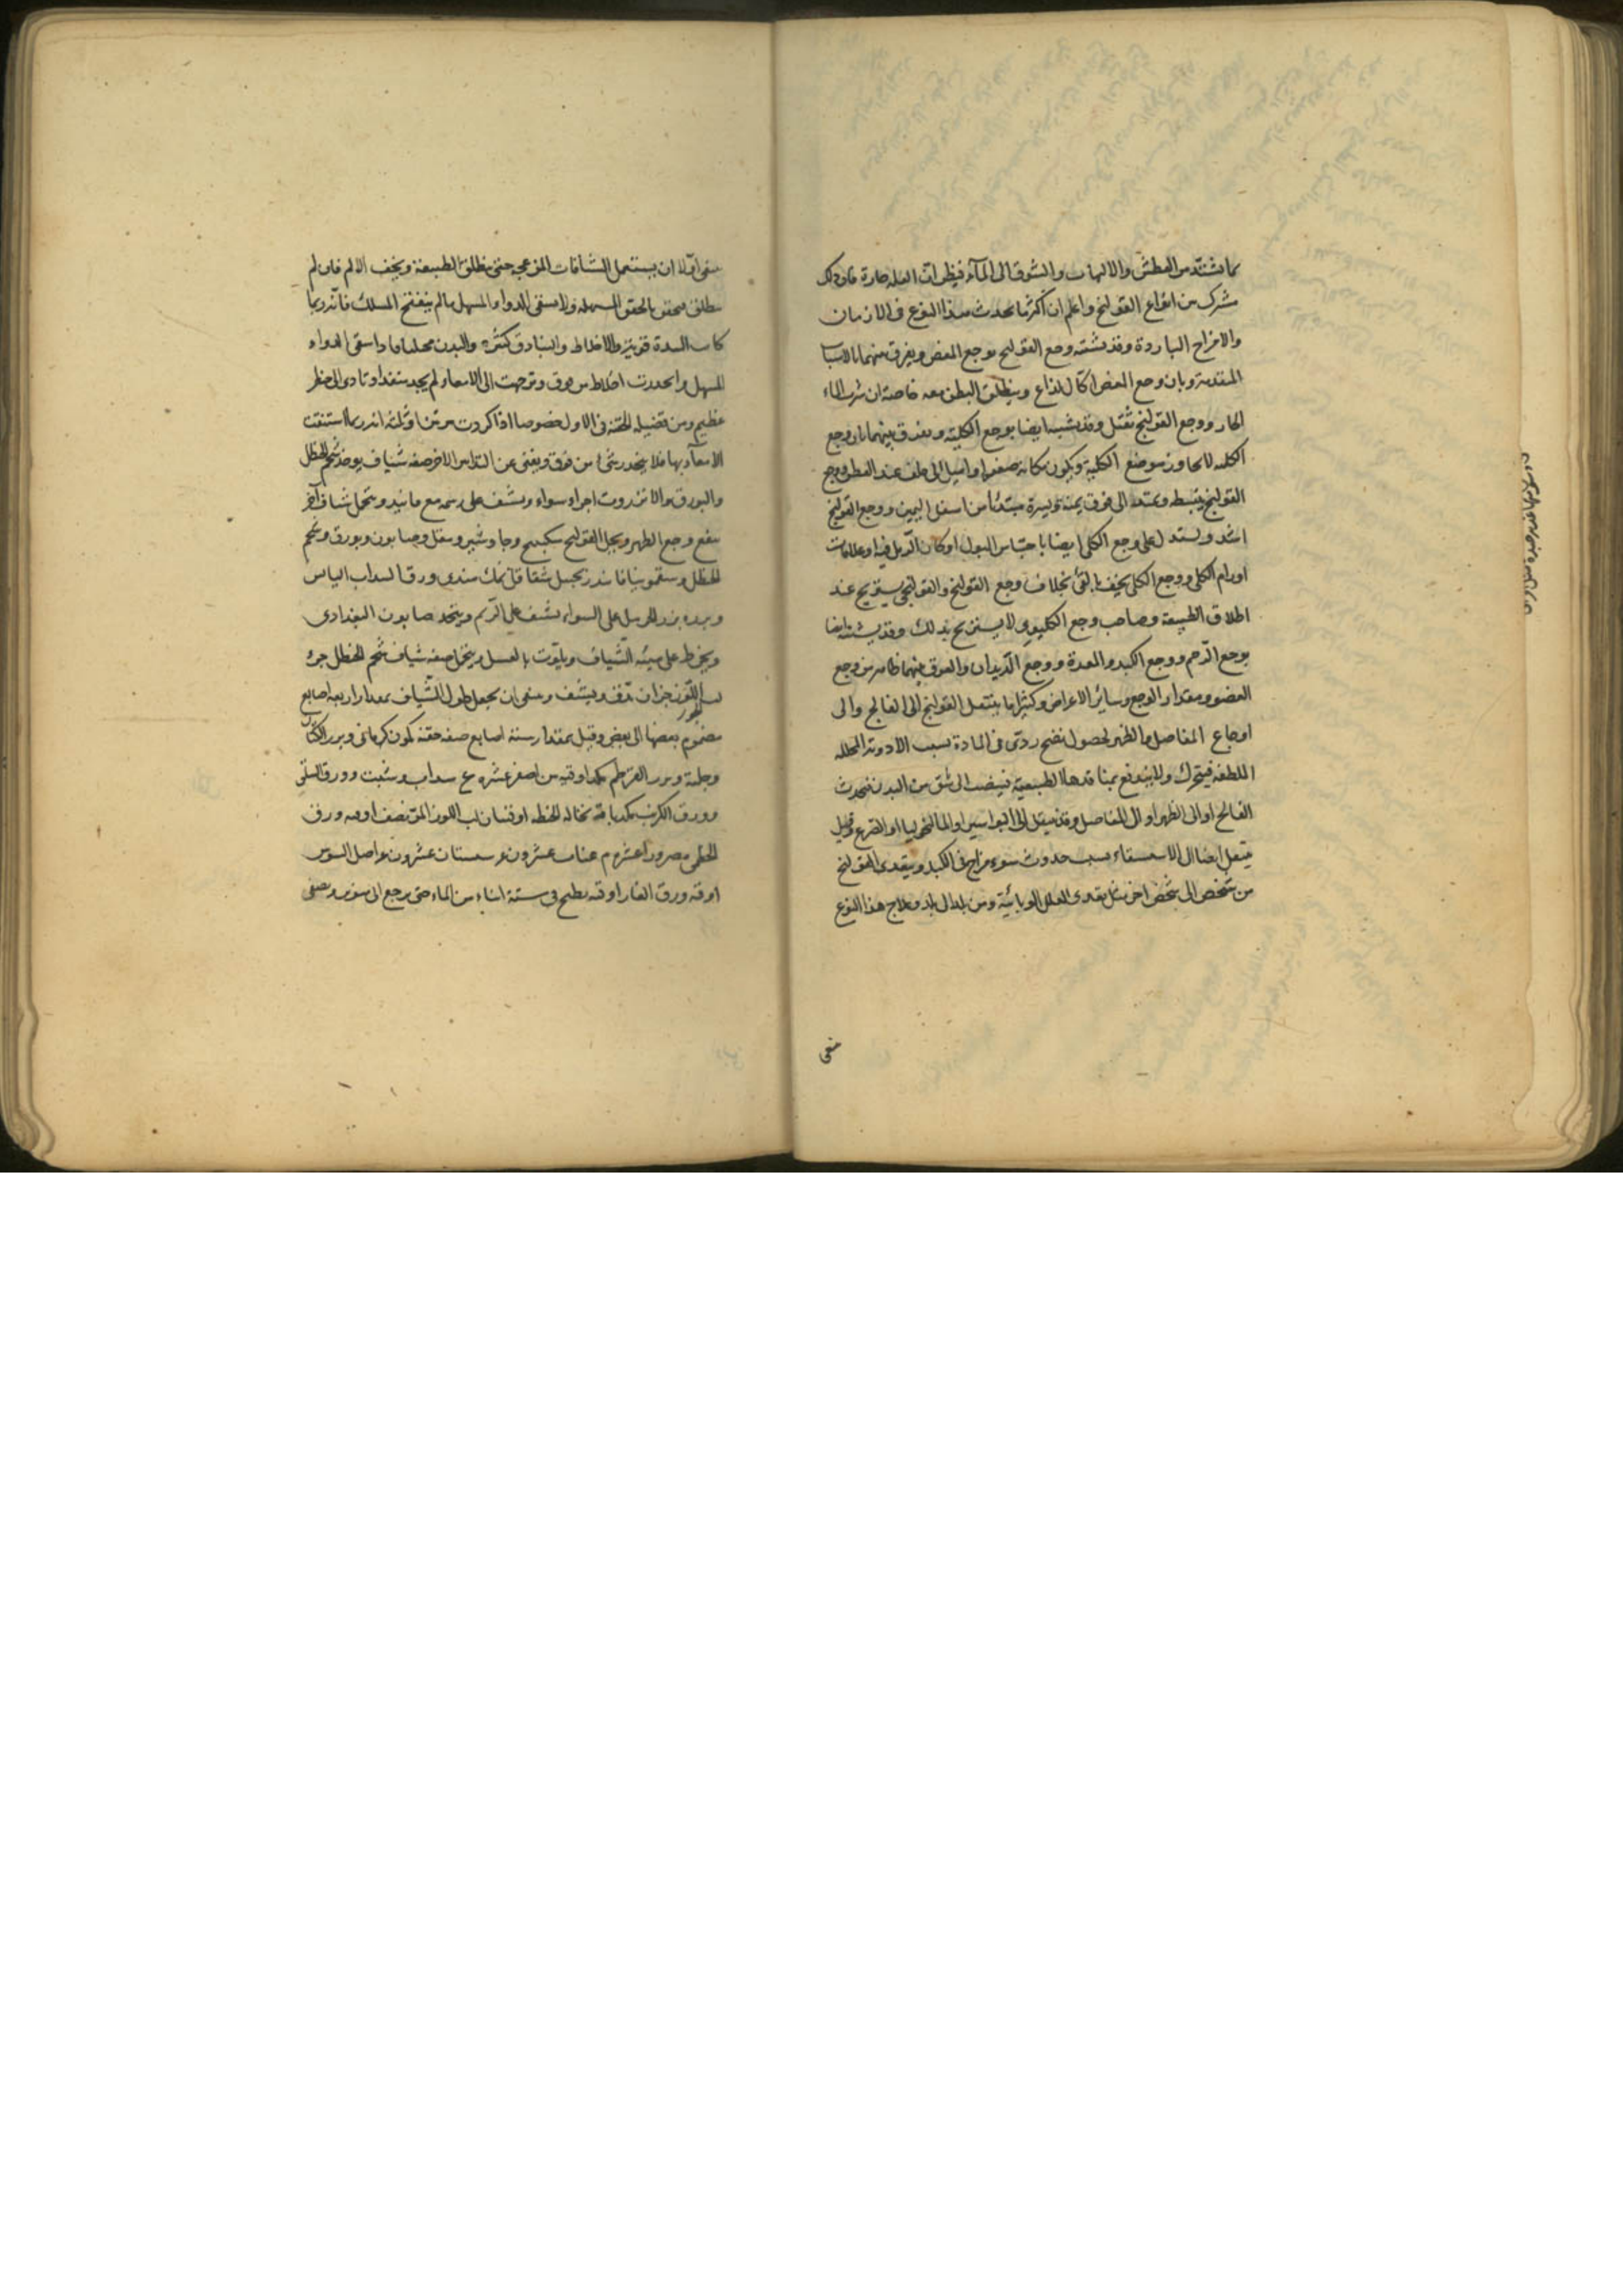 مما يشتد من العطش والالتهاب والشوق الى المآء فيظن ان العله حارة فان ذلك
مشترك من انواع القولنج واعلم ان اكثر ما يحدث هذا النوع فى الازمان
والامزاج الباردة وقد يشتبه وجع القولنج بوجع المغص ويفرق بينهما بالاسباب
المتقدمة وبان وجع المغص اكال لذاع وينطلق البطن معه خاصة ان شرب الماء
الحار ووجع القولنج ثقيل وقد يشتبه ايضا بوجع الكلية ويفرق بينهما بان وجع
الكليه لا يجاوز موضع الكلية ويكون مكانه صغيرا واميل الى خلف عند القطن ووجع
القولنج ينبسط ويمتد الى فوق يمنة ويسرة مبتدئا من اسفل اليمين ووجع القولنج
اشد ويستدل على وجع الكلى ايضا باحتباس البول او كان الرمل فيه او علامات
اورام الكلى ووجع الكلى يخف بالقئ بخلاف وجع القولنج والقولنجى يستريح عند
اطلاق الطبيعة وصاحب وجع الكلية لا يستريح بذلك وقد يشتبه ايضا
بوجع الرحم ووجع الكبد والمعدة ووجع الديدان والفرق بينهما ظاهر من وجع
العضو ومقدار الوجع وسائر الاعراض وكثيرا ما ينتقل القولنج الى الفالج والى
اوجاع المفاصل والظهر لحصول نضج ردى فى المادة بسبب الادوية المحلله
اللطفه فيتحرك ولا يندفع الطبيعية فينصب الى شق من البدن فيحدث
الفالج او الى الظهر او الى المفاصل وقد ينتقل الى البواسير او المالنخوليا او الصرع وقيل
ينتقل ايضا الى الاستسقاء بسبب حدوث سوء مزاج فى الكبد ويتعدى القولنج
من شخص الى شخص اخر مثل تعدى العلل الوبائية ومن بلد الى بلد وعلاج هذا النوع
ينبغى
ينبغى اولا ان يستعمل الشافات المزعجه حتى ينطلق الطبيعة ويخف الالم فان لم
ينطلق فيحقن بالحقن المسهله ولا يسقى الدواء المسهل ما لم ينفتح المسلك فانه ربما
كانت السدة قوية والاخلاط والبنادق كثيره والبدن ممتليا فاذا سقى الدواء
المسهل وانحدرت اخلاط من فوق وتوجهت الى الامعاء ولم يجد منفذا وتادى الى خطر
عظيم ومن فضيله الحقنة فى الاول خصوصا اذا كررت مرتين او ثلثه انه ربما استنقت
الامعآء بها فلا ينحدر شئ من فوق ويغنى عن التدابير الاخر صفه شياف يوخذ شحم الحنظل
والبورق والانزروت اجزاء سواء ويشيف على رسمه مع فانيد ويتحمل شياف اخر
ينفع وجع الظهر ويحل القولنج سكبينج وجاوشير ومقل وصابون وبورق وشحم
الحنظل وسقمونيا فانيد زنجبيل شقاقل نمك هندى ورق السداب اليابس
على السواء يشيف على الرسم ويتخذ صابون البغدادى
ويخرط على هيئه الشياف ويلوث بالعسل ويتحمل صفه شياف شحم الحنظل جزء
لب اللوز جزان يدق ويشيف وينبغى ان يجعل طول الشياف بمقدار اربعه اصابع
مضموم بعضها الى بعض وقيل بمقدار ستة اصابع صفه حقنه كمون كرمانى وبزر الكتان
وحلبة وبزر القرطم كل اوقيه من اصفر عشره ع سداب وشبت وورق السلق
وورق الكرنب كل باقة نخالة الحنطه اوقيتان لب اللوز المر نصف اوقيه ورق
الخطمى عشره م عناب عشرون سبستان عشرون اصل السوس
اوقيه ورق الغار اوقيه يطبخ فى ستة امناء من الماء حتى يرجع الى منوين ويصفى